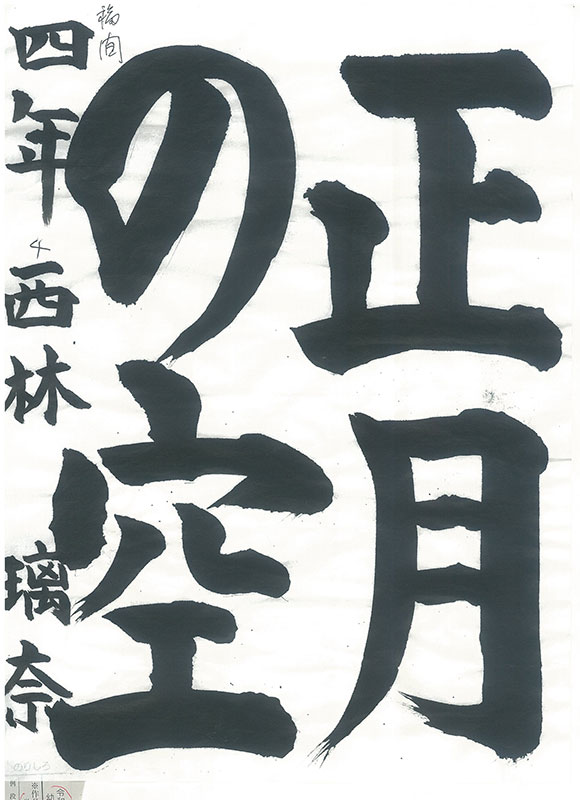 正月
の空
四年 西林 璃奈
福間
4
のりしろ